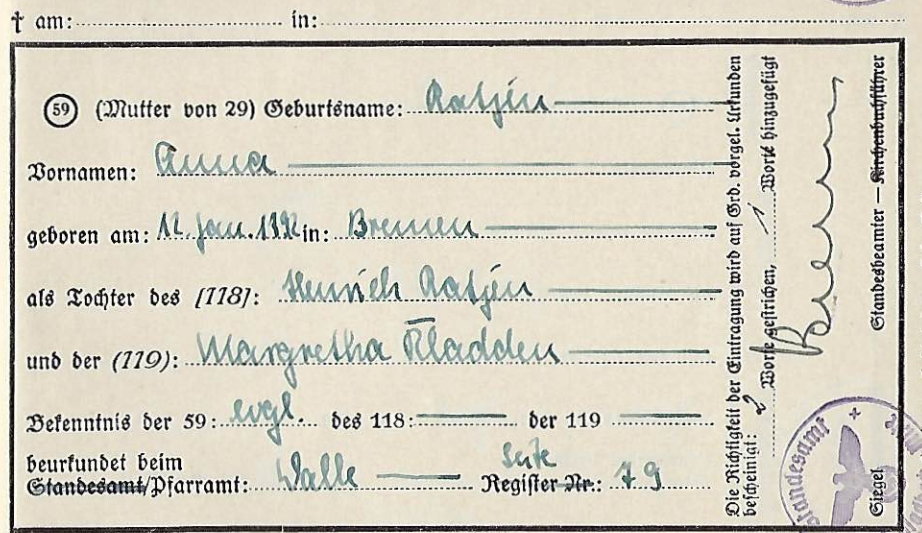 † am: in:
59 (Mutter von 29) Geburtsname: Ratjen
Vornamen: Anna
geboren am: 12. Jan. in: Bremen
als Tochter des [118]: Hinrich Ratjen
und der (119): Margretha Kladden
Bekenntnis der 59: evgl. des 118: der 119
beurkundet beim
Standesamt/Pfarramt: Walle Seite Register Nr.: 79
Die Richtigkeit der Eintragung wird auf Grd. vorgel. Urkunden
bescheinigt: 2 Worte gestrichen, / Worte hinzugefügt
Standesbeamter — Kirchenbuchführer
Siegel
Standesamt